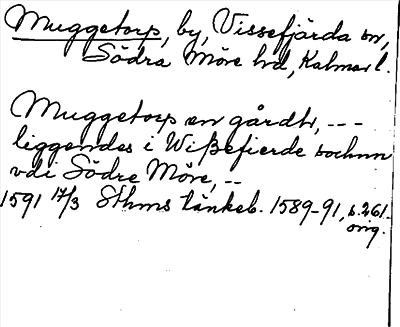 Muggetorp, by, Vissefjärda sn,
Södra Möre hd, Kalmar l.
Muggetorp en gårdh, ---
liggendes i Wißefierde sochnn
vdi Södre Möre, --
1591 17/3 Sthms tänkeb. 1589-91, s. 261.
orig.